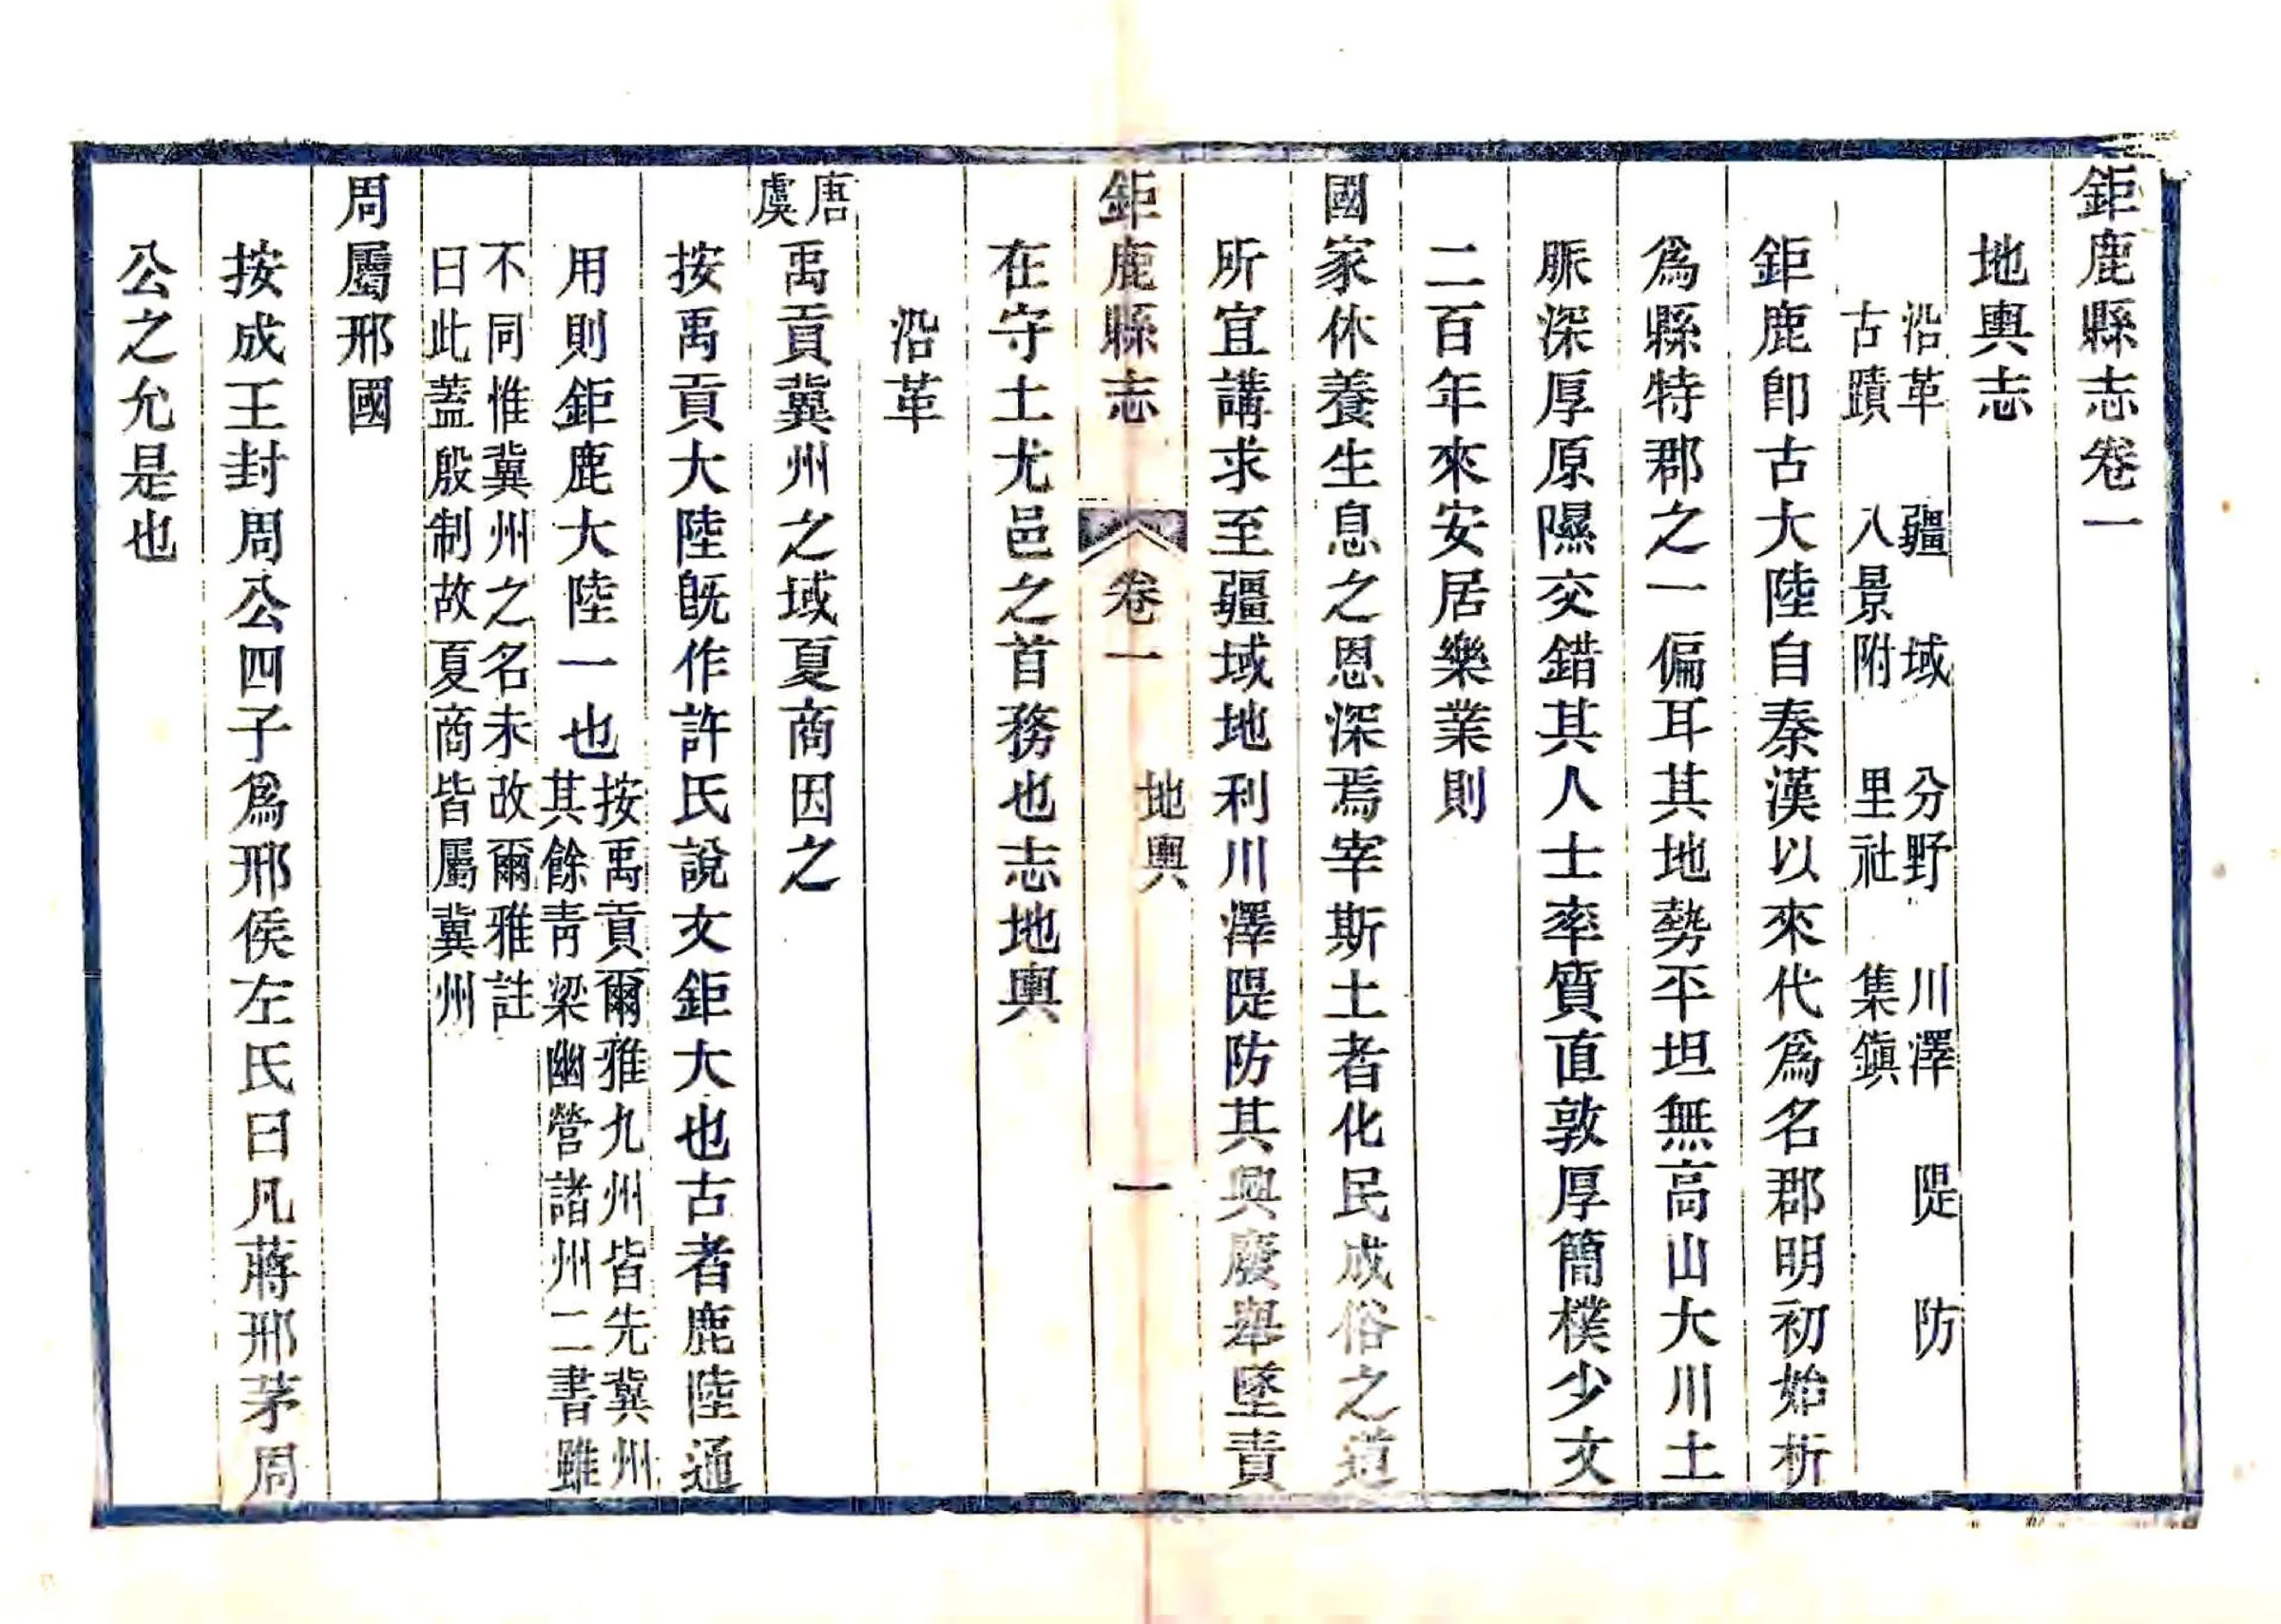 鉅鹿縣志卷一
地輿志
沿革　疆域　分野　川澤　隄防
古蹟　八景附　里社　集鎭
鉅鹿卽古大陸自秦漢以來代爲名郡明初始析
爲縣特郡之一偏耳其地勢平坦無高山大川土
脈深厚原隰交錯其人士率質直敦厚簡樸少文
二百年來安居樂業則
國家休養生息之恩深焉宰斯土者化民成俗之道
所宜講求至疆域地利川澤隄防其興廢舉墜責
鉅鹿縣志　卷一　地輿　一
在守土尤邑之首務也志地輿
沿革
唐虞禹貢冀州之域夏商因之
按禹貢大陸旣作許氏說文鉅大也古者鹿陸通
用則鉅鹿大陸一也
按禹貢爾雅九州皆先冀州
其餘靑梁幽營諸州二書雖
不同惟冀州之名未改爾雅註
曰此蓋殷制故夏商皆屬冀州
周屬邢國
按成王封周公四子爲邢侯左氏曰凡蔣邢茅周
公之允是也